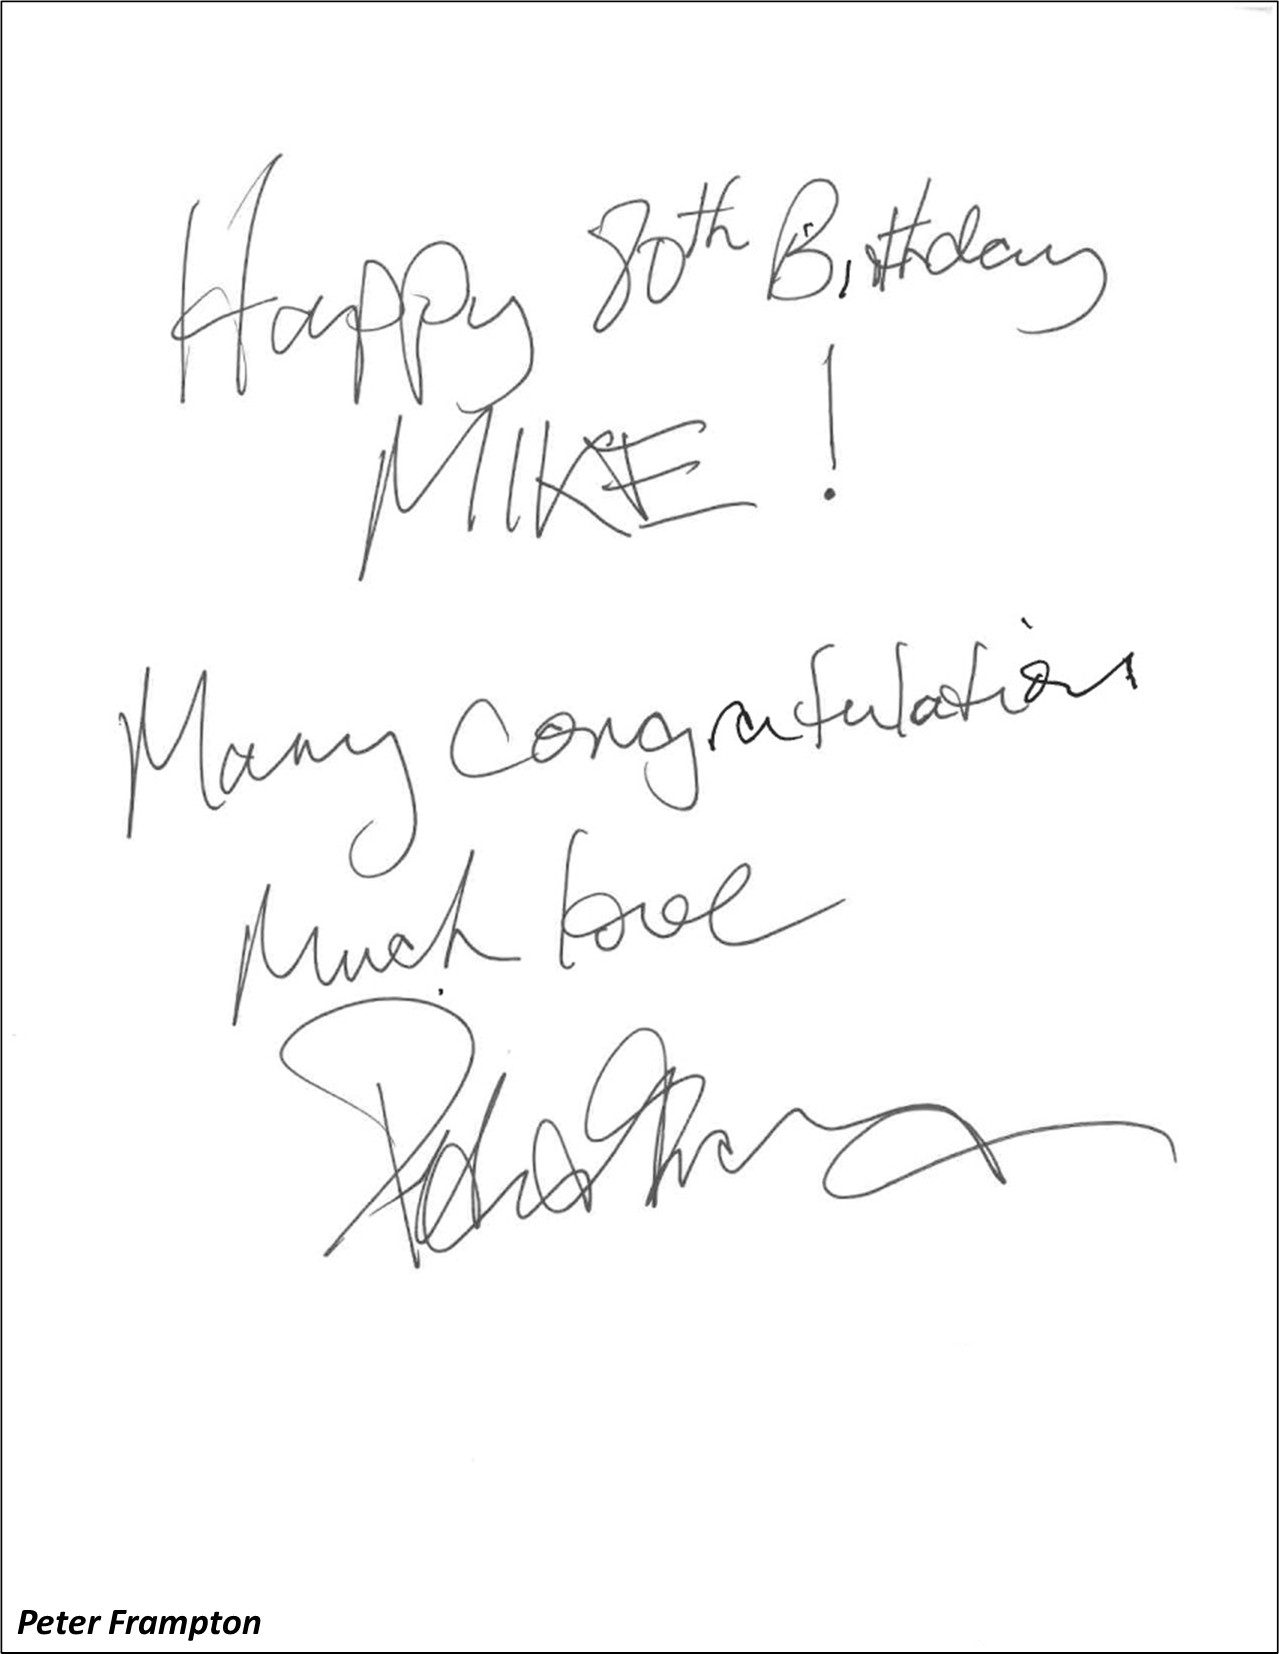 Happy 80th Birthday
MIKE !
Many congratulations
Much love
Peter Frampton
Peter Frampton